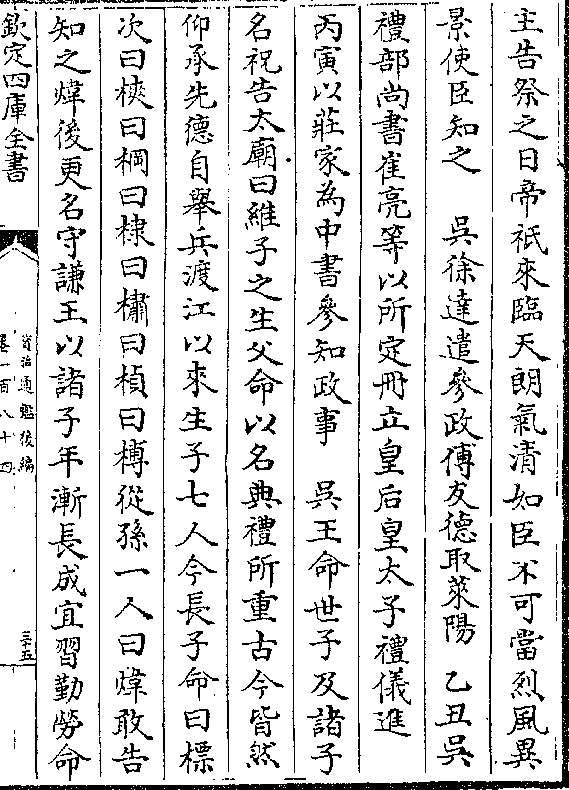 主告祭之日帝祇來臨天朗氣清如臣不可當烈風異
景使臣知之　吳徐達遣參政傅友德取萊陽　乙丑吳
禮部尚書崔亮等以所定冊立皇后皇太子禮儀進
丙寅以莊家為中書參知政事　吳王命世子及諸子
名祝告太廟曰維子之生父命以名典禮所重古今皆然
仰承先德自舉兵渡江以來生子七人今長子命曰標
次曰樉曰棡曰棣曰橚曰楨曰榑從孫一人曰煒敢告
知之煒後更名守謙王以諸子年漸長成宜習勤勞命
欽定四庫全書
資治通鑑後編
卷一百八十四
三十五